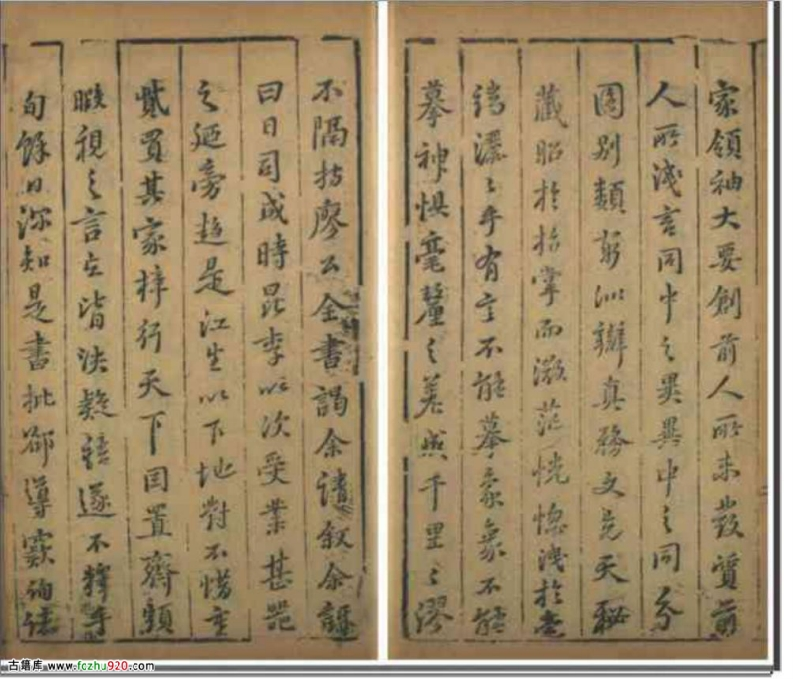 家領袖大要創前人所未發質前
人所淺言同中之異異中之同分
圖別類窮
辯真務文竟天秘
藏昭於指掌而微茫恍惚淺於毫
端灑之乎有言不能摹象象不能
摹神懼毫釐之差成千里之謬
不隔於廖公全書謁余請叙余訝
曰日司成時昆李以次受業甚
之廼旁趋是江生以下地對不惜重
貲買其家梓行天下因置齋頭
暇視之言立皆決疑語遂不釋手
旬餘日深知是書批郤導窾
古籍库 www.fczhu920.com